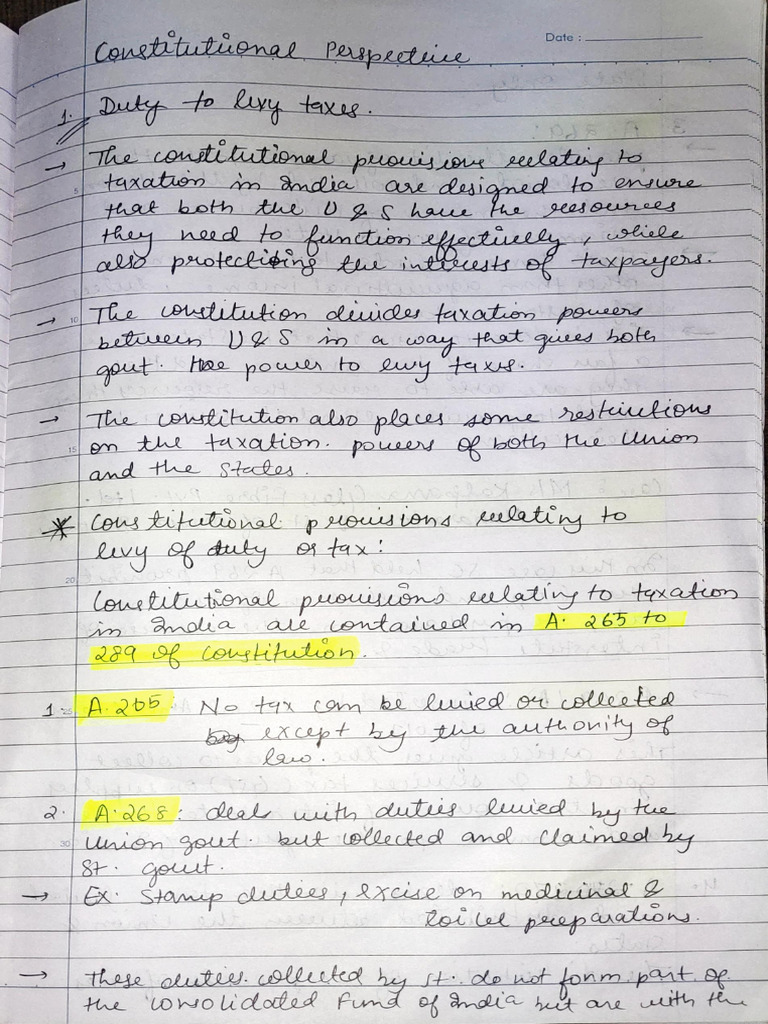 Date :
Constitutional Perspective
1. Duty to levy taxes.
→ The constitutional provisions relating to
5 taxation in India are designed to ensure
that both the U & S have the resources
they need to function effectively, while
also protecting the interests of taxpayers.
→ 10 The constitution divides taxation powers
between U & S in a way that gives both
govt. the power to levy taxes.
→ The constitution also places some restrictions
15 on the taxation. powers of both the Union
and the States.
* Constitutional provisions relating to
levy of duty or tax:
20 Constitutional provisions relating to taxation
in India are contained in A. 265 to
289 of constitution.
1. 25 A. 265. No tax can be levied or collected
except by the authority of
law.
2. A. 268: deals with duties levied by the
30 Union govt. but collected and claimed by
St. govt.
→ Ex. Stamp duties, excise on medicinal &
toilet preparations.
→ These duties collected by st. do not form part of
the Consolidated Fund of India but are with the